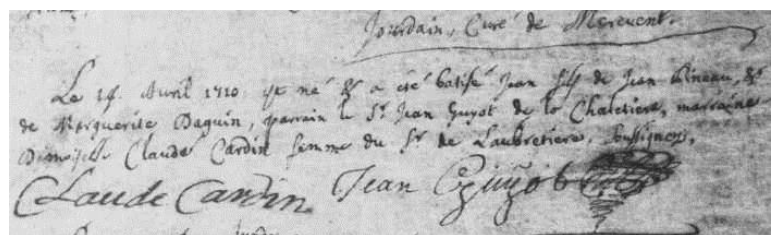 Jourdain, Curé de Merevent.
Le 14. Avril 1710. est né & a été batisé Jean fils de Jean Pineau, &
de Marguerite Daguin, parrain le Sr. Jean Guyot de la Chaletiere, marraine
Damoiselle Claude Cardin femme du Sr. de Laubretiere, soussignez,
Claude Cardin. Jean Guyot